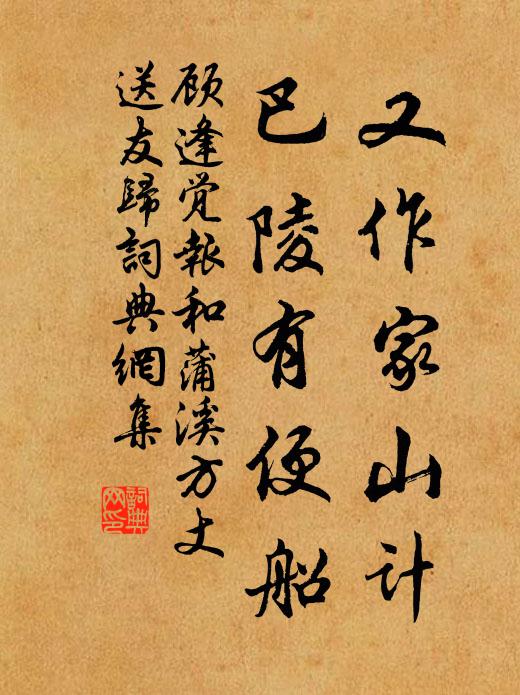 又作家山计
巴陵有便船
顾逢觉报和蒲溪方丈
送友歸詞典網集
詞典
网印